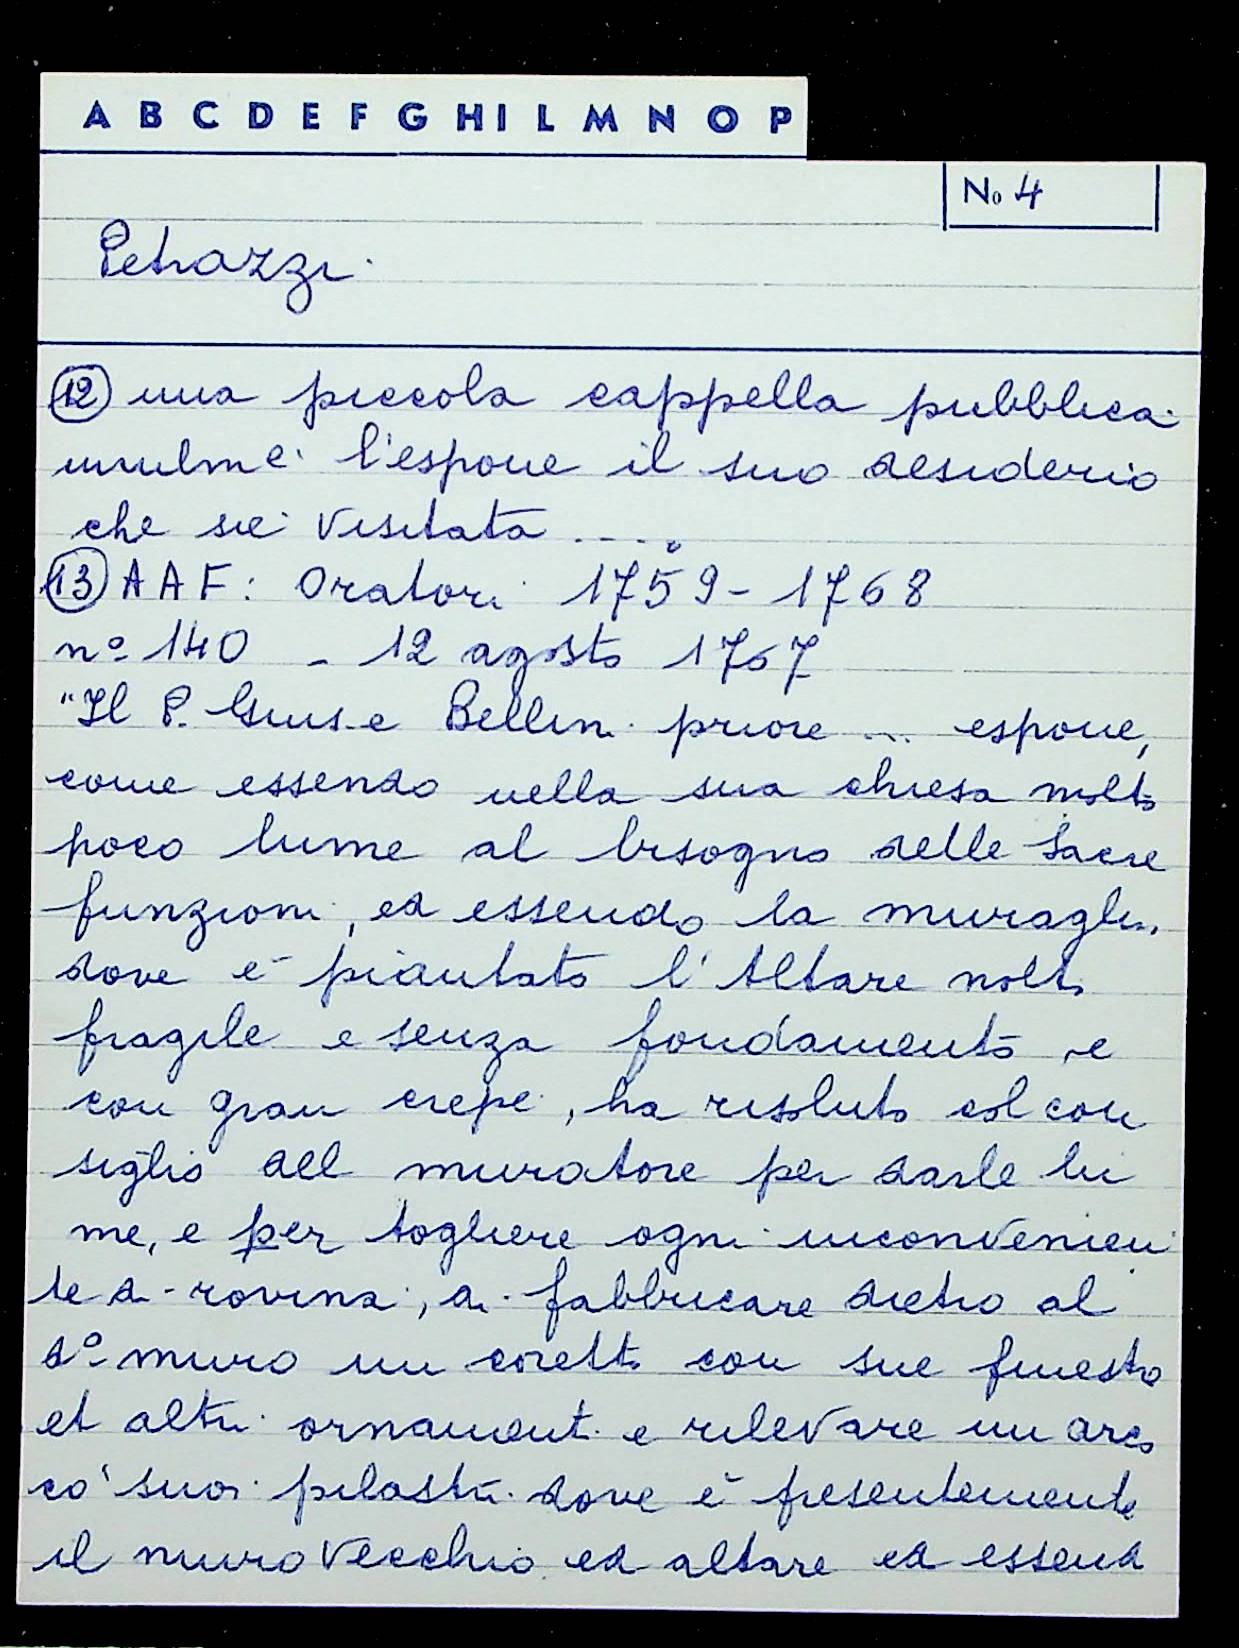 A B C D E F G H I L M N O P
No 4
Petrazzi.
12 una piccola cappella pubblica
umilme. l'espone il suo desiderio
che sie visitata ....
13 AAF: Oratori 1759-1768
nº 140 - 12 agosto 1767
"Il P. Gius.e Bellini priore ... espone,
come essendo nella sua chiesa molto
poco lume al bisogno delle sacre
funzioni, ed essendo la muraglia
dove è piantato l'Altare molto
fragile e senza fondamento, e
con gran crepe, ha risoluto col con
siglio del muratore per darle lu
me, e per togliere ogni inconvenien
te di rovina, di fabbricare dietro al
dº muro un coretto con sue finestre
et altri ornamenti e rilevare un arco
co' suoi pilastri dove è presentemente
il muro vecchio ed altare ed essend